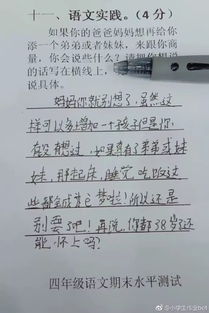 十一、语文实践。(4分)
如果你的爸爸妈妈想再给你
添一个弟弟或者妹妹,来跟你商
量,你会说些什么?请把你想说
的话写在横线上,
说具体。
妈妈你就别想了,虽然这
样可以多增加一个孩子但是你
有没有想过,如果真有了弟弟或妹
妹,那起床,睡觉,吃饭这
些都会成白日梦啦!所以还是
别要了吧!再说,你都38岁了还
能怀上吗?
四年级语文期末水平测试
@小学生作业bot